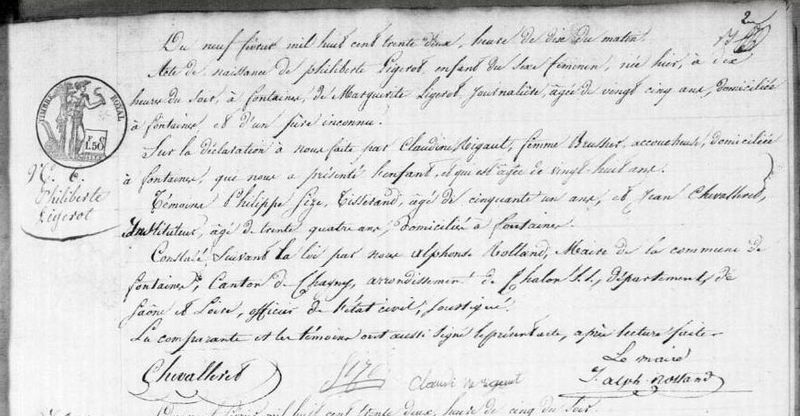 2
Du neuf février mil huit cent trente deux, heure de dix du matin.
Acte de naissance de philiberte Ligerot, enfant du sexe féminin, née hier, à dix
heures du soir, à fontaines, de Marguerite Ligerot, Journalière, agée de vingt cinq ans, domiciliée
à fontaines et d'un père inconnu.
Sur la déclaration à nous faite par Claudine Reigaut, femme Brusser, accoucheuse, domiciliée
à fontaines, que nous a présenté l'enfant, et qui est agée de vingt huit ans.
Témoins Philippe Size, Tisserand, agé de cinquante un ans, et Jean Chevalleret,
Instituteur, agé de trente quatre ans, domiciliés à fontaines.
Constaté, Suivant la loi par nous alphonse Rolland, Maire de la commune de
fontaines, Canton de Chagny, arrondissement de Chalon S.S., département de
Saône et Loire, officier de l'état civil, soussigné.
La comparante et les témoins ont aussi signé le présent acte, après lecture faite.
Le maire
Chevalleret
Size
J. alph Rolland
TIMBRE ROYAL
1.50
N°. 6.
Philiberte
Ligerot
mil huit cent trente deux, heure de cinq du soir.